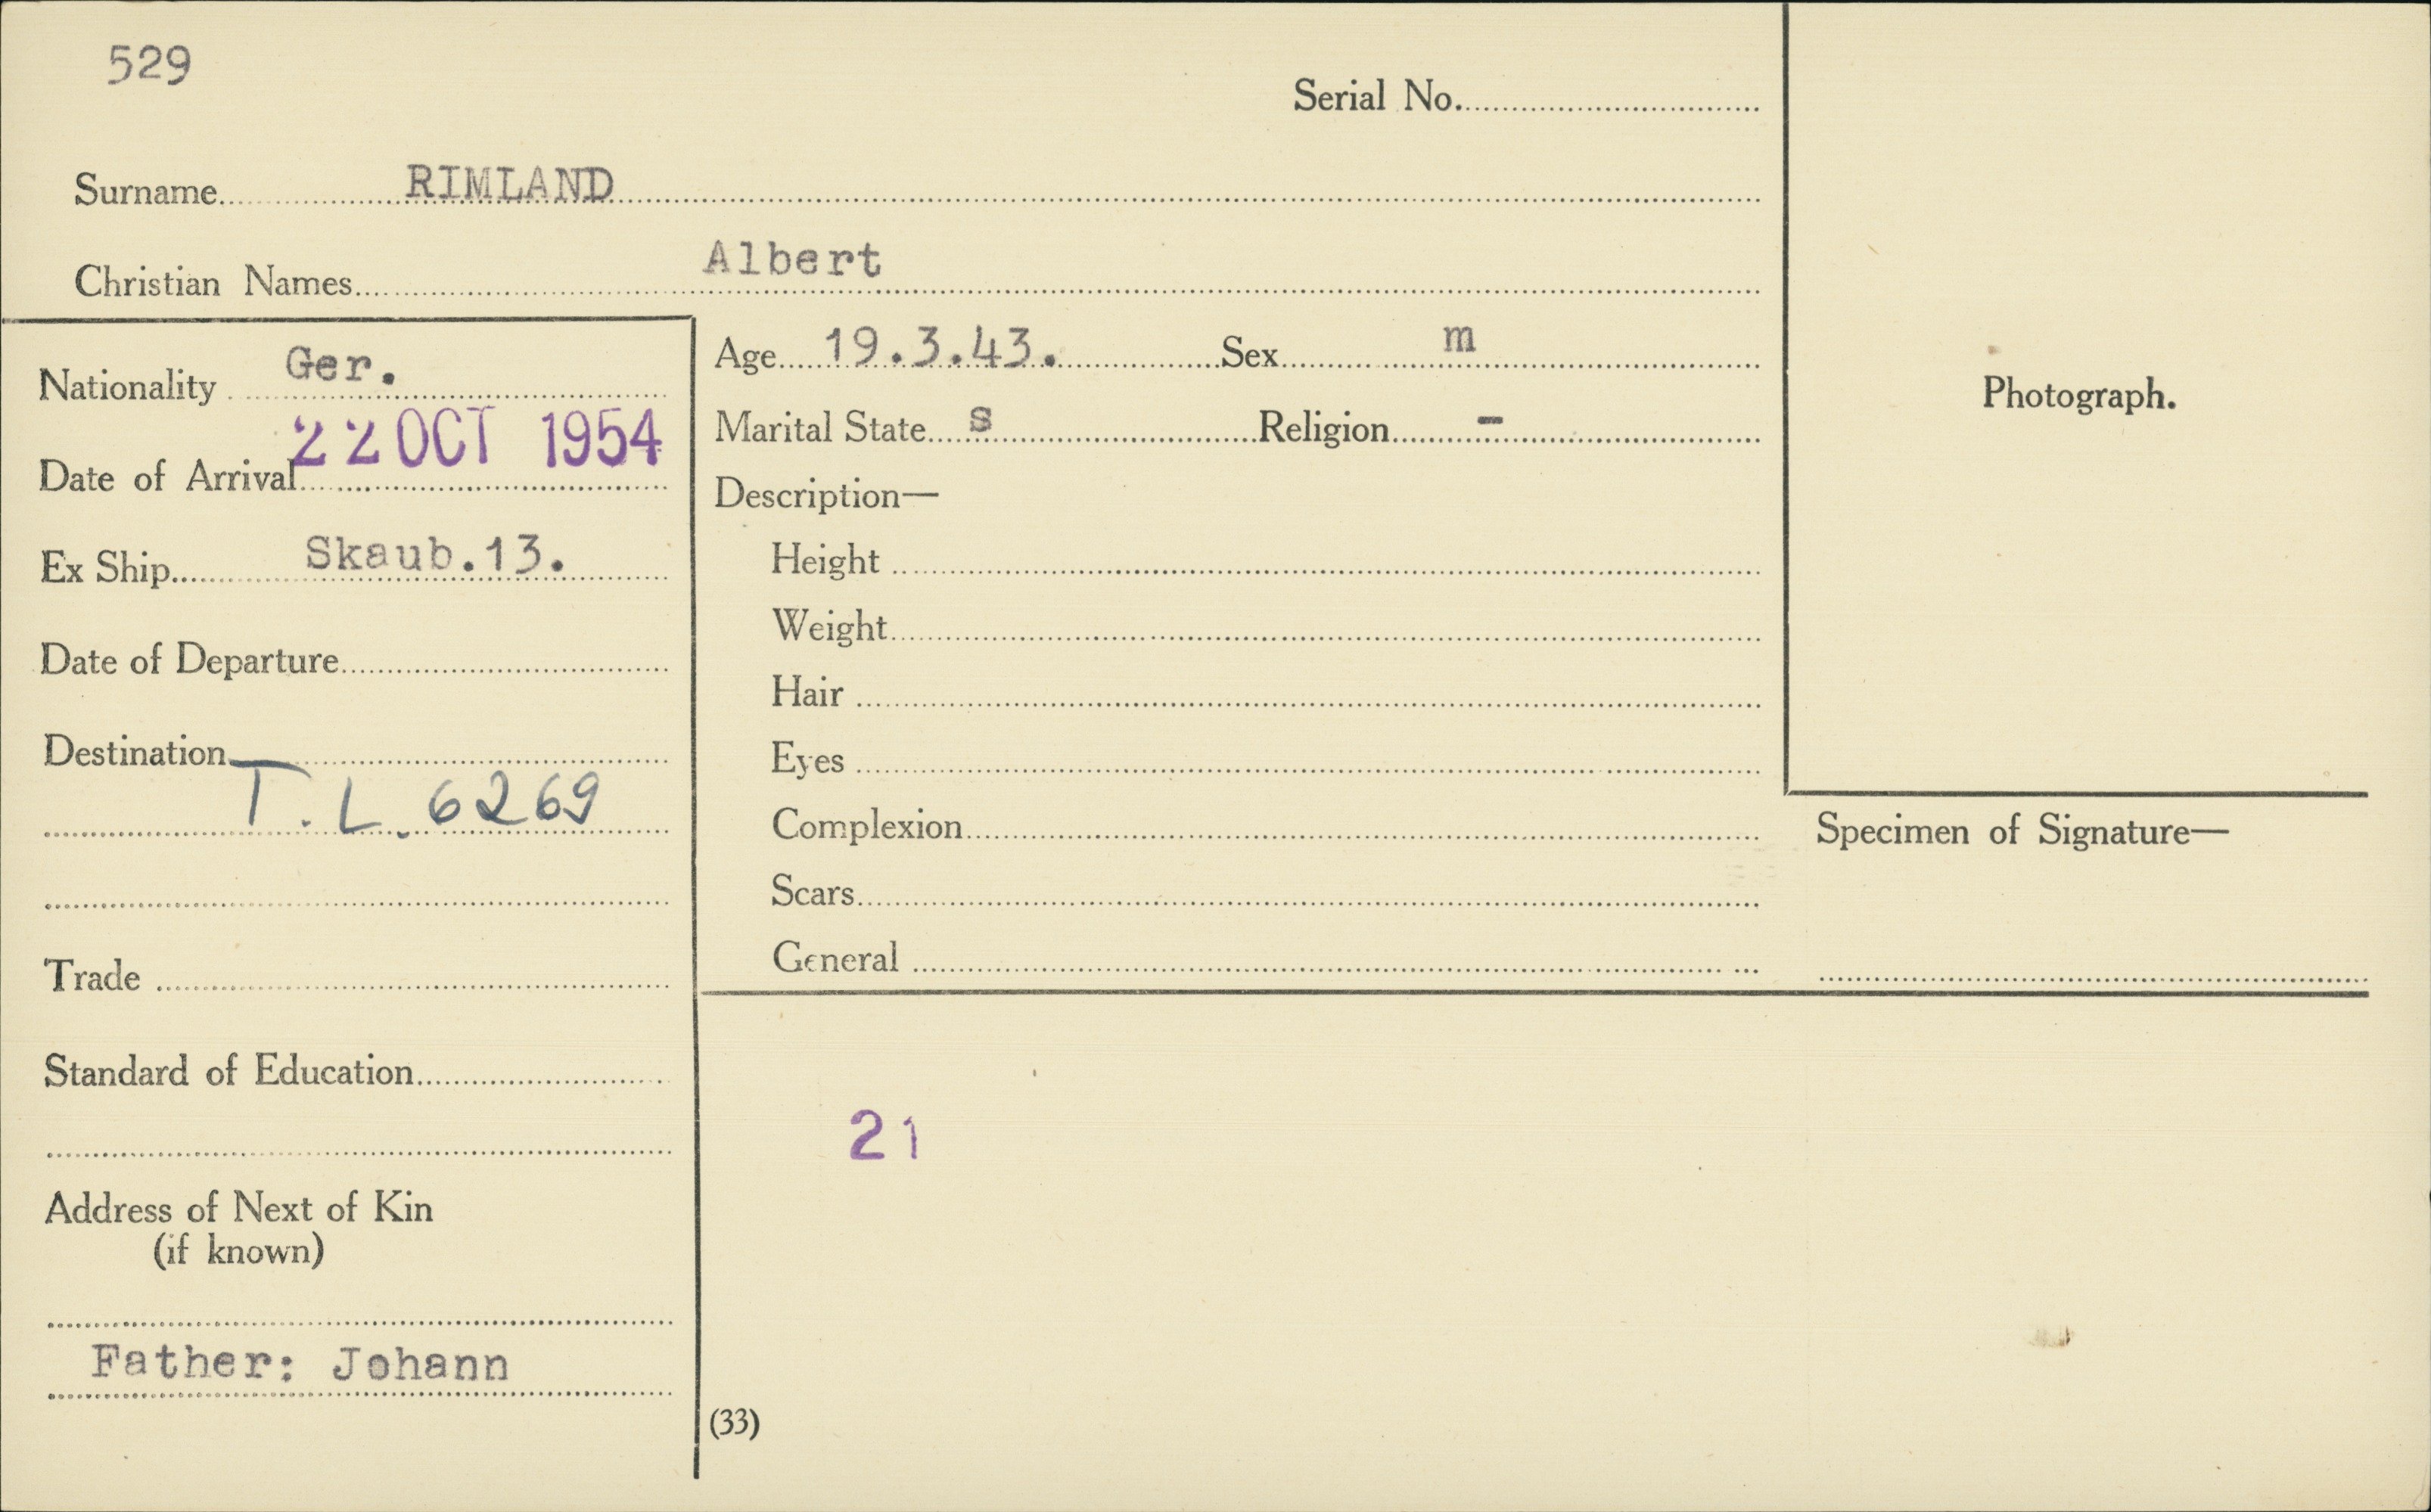 529
Serial No.
Surname RIMLAND
Christian Names Albert
Nationality Ger.
Date of Arrival 22 OCT 1954
Ex Ship Skaub.13.
Date of Departure
Destination
T.L. 6269
Trade
Standard of Education
Address of Next of Kin
(if known)
Father: Johann
Age 19.3.43. Sex m
Marital State s Religion -
Description—
Height
Weight
Hair
Eyes
Complexion
Scars
General
Photograph.
Specimen of Signature—
21
(33)